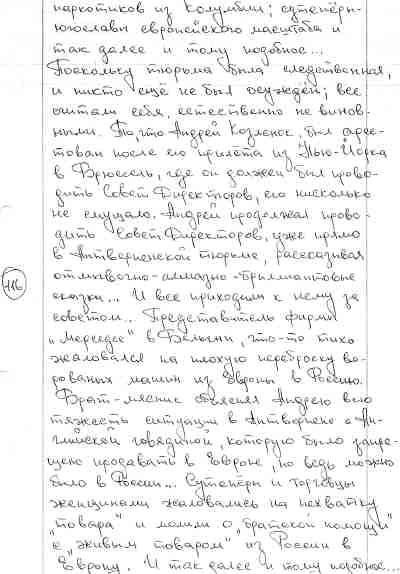 наркотиков из Колумбии; сутенёры-
югославы европейского масштаба и
так далее и тому подобное...
Поскольку тюрьма была следственная,
и никто ещё не был осуждён; все
считали себя, естественно не винов-
ными. То, что Андрей Козлёнок, был арес-
тован после его прилёта из Нью-Йорка
в Брюссель, где он должен был прово-
дить Совет Директоров, его нисколько
не смущало. Андрей продолжал прово-
дить Совет Директоров, уже прямо
в Антверпенской тюрьме, рассказывая
отмывочно-алмазно-бриллиантовые
116
сказки... И все приходили к нему за
советом... Представитель фирмы
"Мерседес" в Бельгии, что-то тихо
жаловался на плохую переброску во-
рованых машин из Европы в Россию.
Фрат-мясник объяснял Андрею всю
тяжесть ситуации в Антверпене с Ан-
глийской говядиной, которую было запре-
щено продавать в Европе, но ведь можно
было в России... Сутенёры и торговцы
женщинами жаловались на нехватку
"товара" и молили о "братской помощи"
с "живым товаром" из России в
Европу. И так далее и тому подобное...